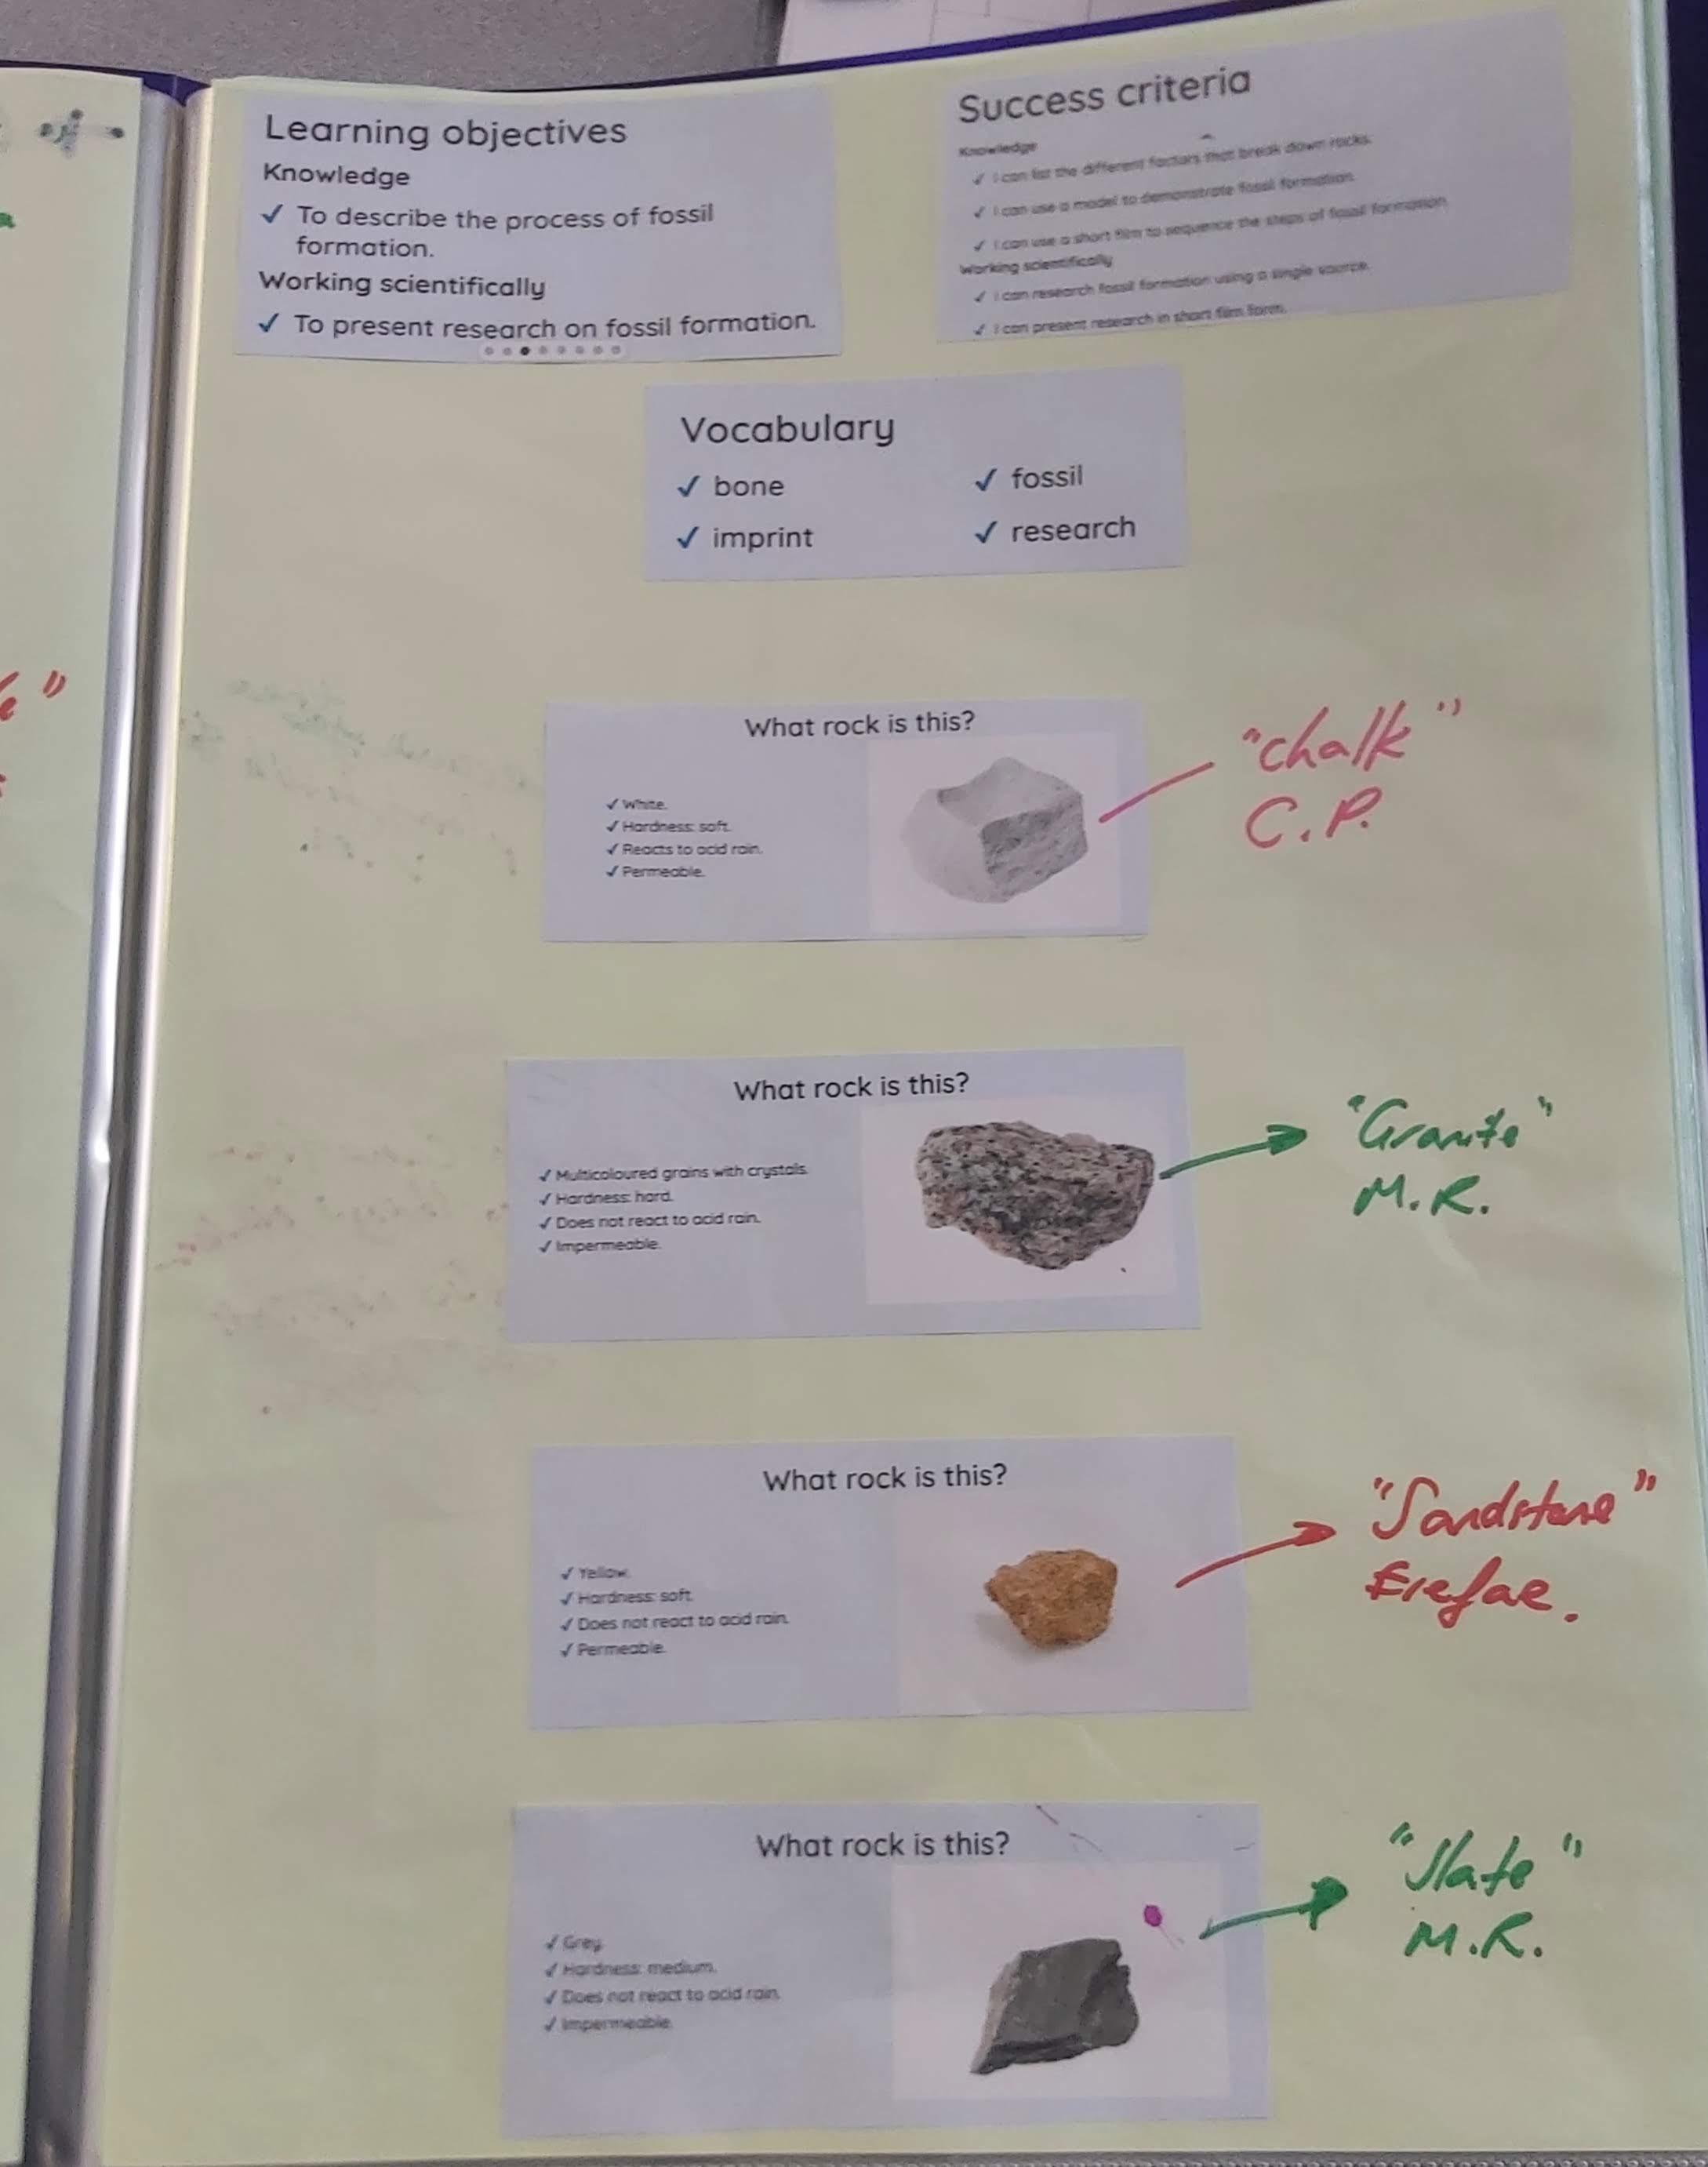 Learning objectives
Knowledge
✓ To describe the process of fossil
formation.
Working scientifically
✓ To present research on fossil formation.
Success criteria
Knowledge
✓ I can list the different factors that break down rocks.
✓ I can use a model to demonstrate fossil formation.
✓ I can use a short film to sequence the steps of fossil formation.
Working scientifically
✓ I can research fossil formation using a single source.
✓ I can present research in short film form.
Vocabulary
✓ bone
✓ fossil
✓ imprint
✓ research
What rock is this?
✓ White.
✓ Hardness: soft.
✓ Reacts to acid rain.
✓ Permeable.
"chalk"
C.P.
What rock is this?
✓ Multicoloured grains with crystals.
✓ Hardness: hard.
✓ Does not react to acid rain.
✓ Impermeable.
"Granite"
M.R.
What rock is this?
✓ Yellow.
✓ Hardness: soft.
✓ Does not react to acid rain.
✓ Permeable.
"Sandstone"
What rock is this?
✓ Grey
✓ Hardness: medium.
✓ Does not react to acid rain.
✓ Impermeable.
"Slate"
M.R.